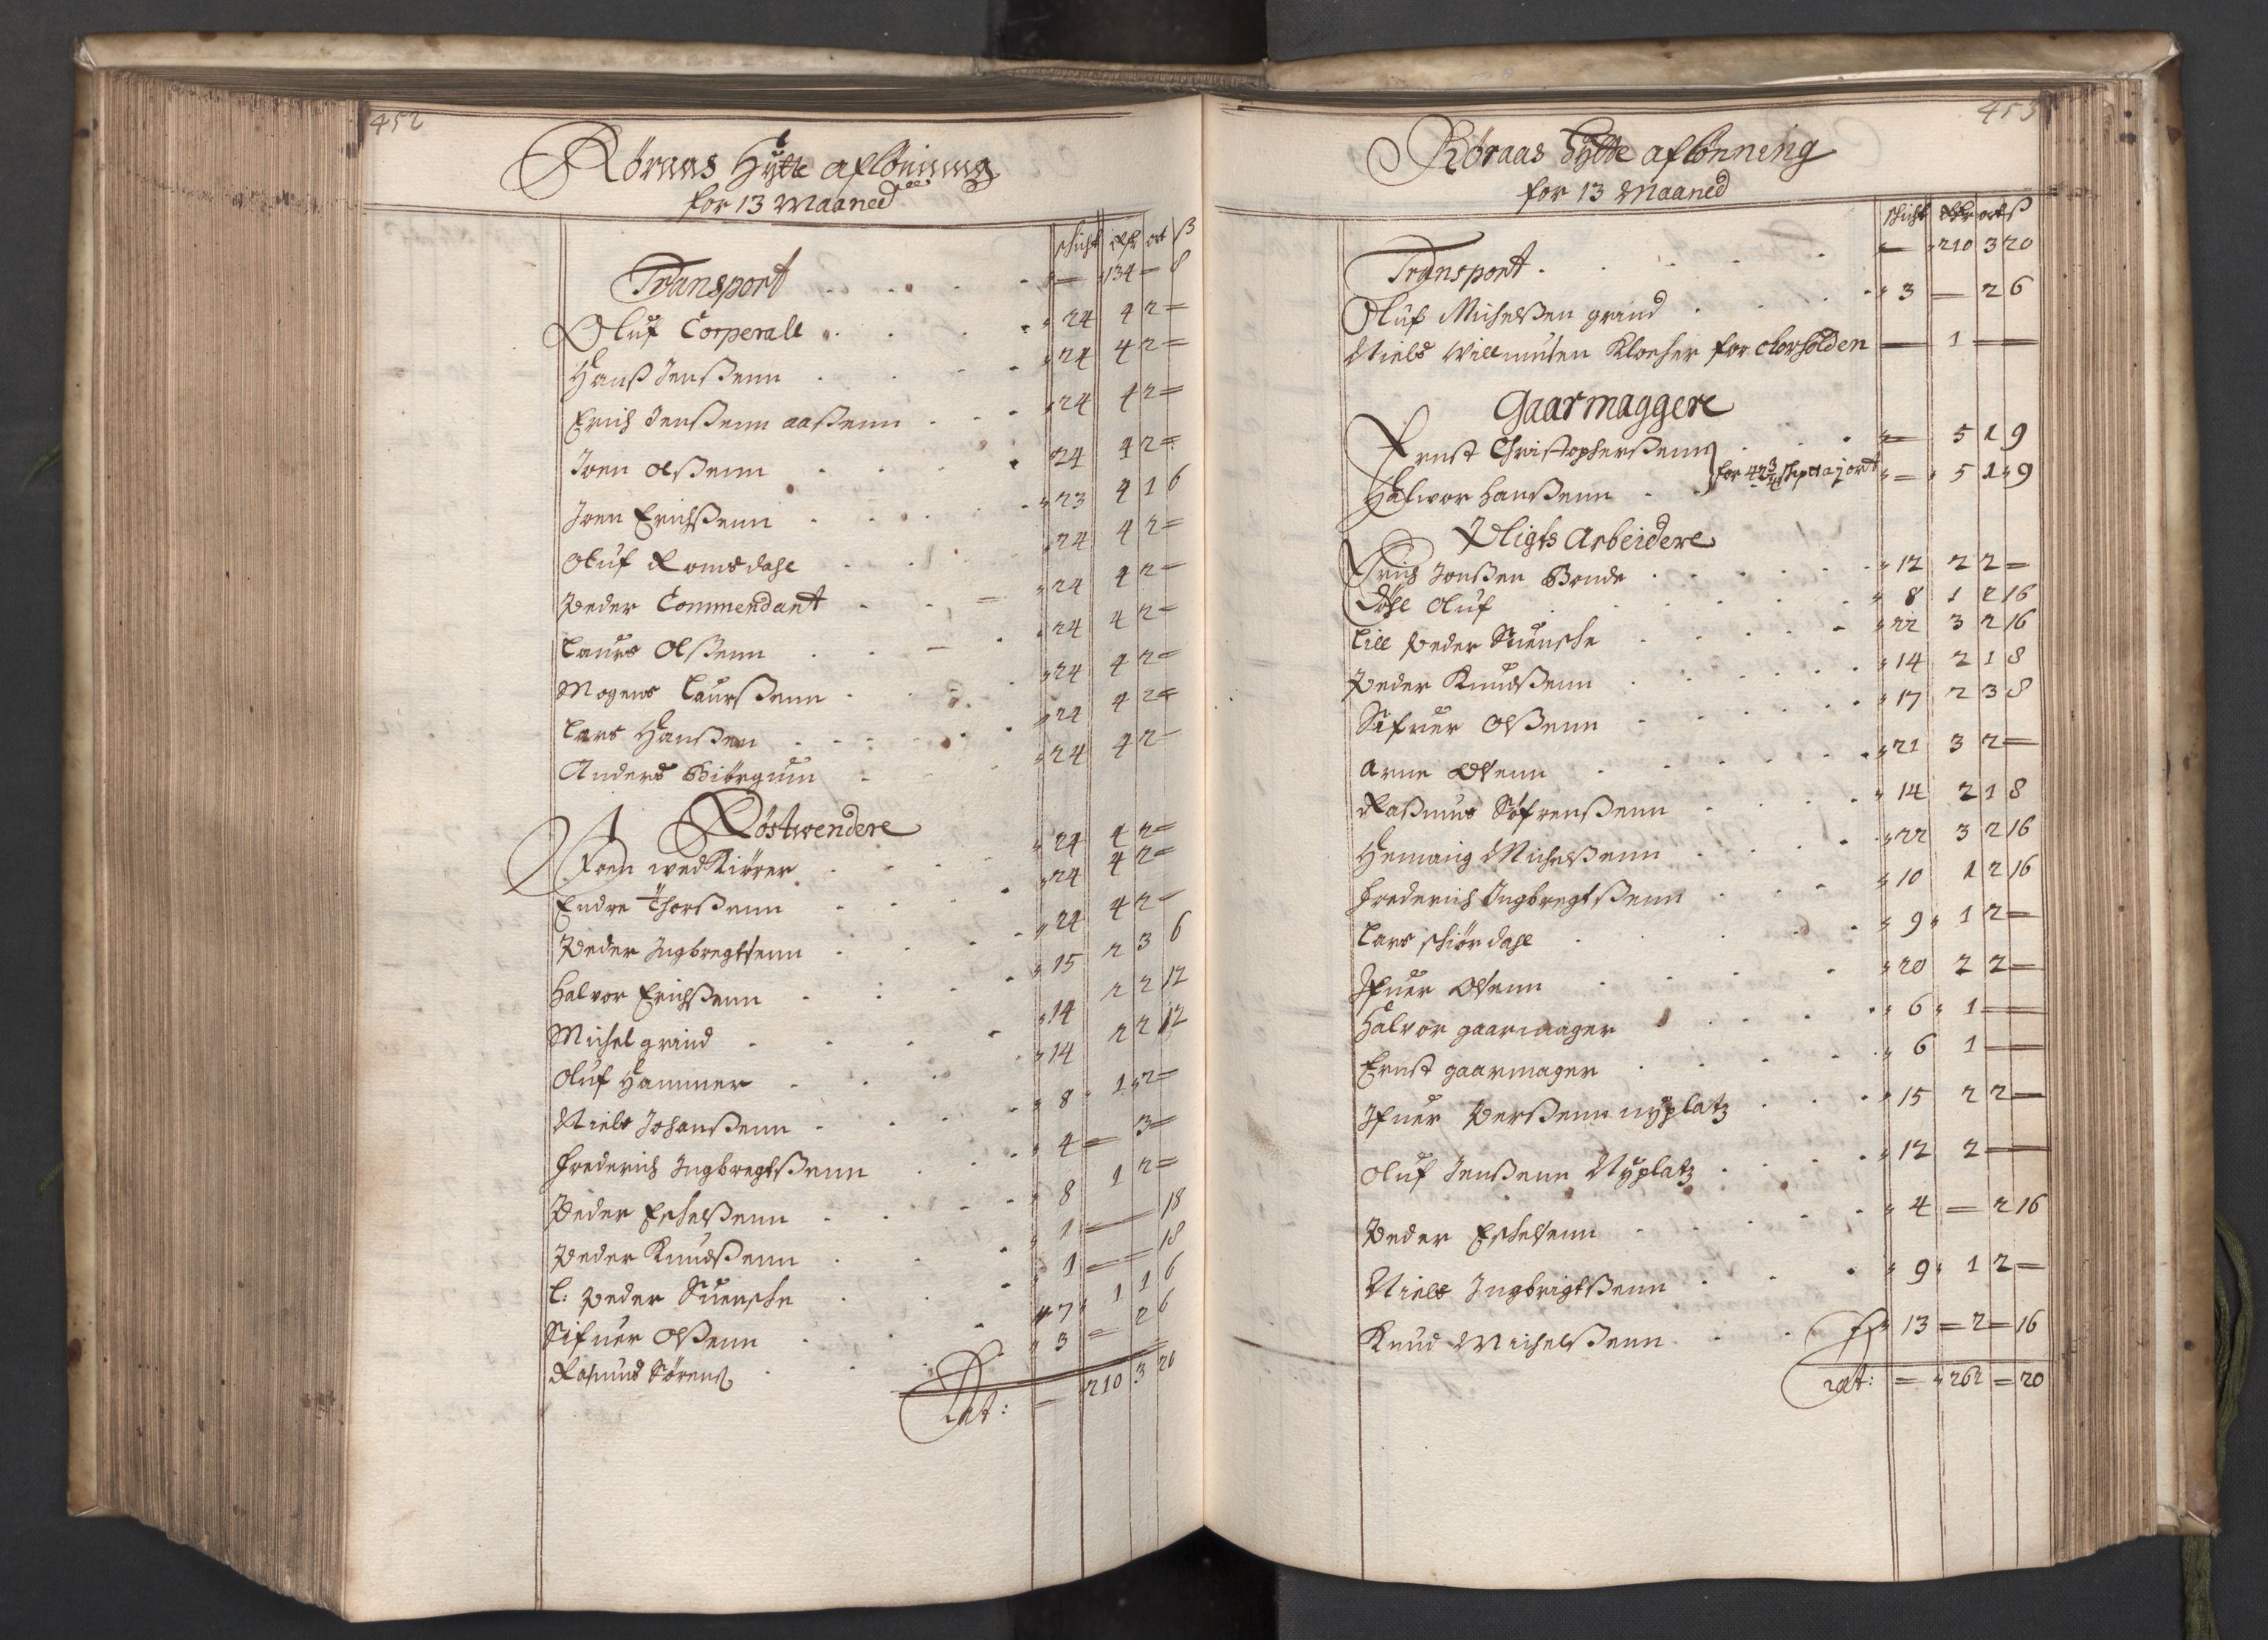 452
Røraas Hytte aflønning
for 13 Maaned
schicht Rdr ort ß
Transport — 134 — 8
Oluf Corperall 24 4 2 —
Hanß Jenßenn 24 4 2 —
Erich Jenßenn aaßenn 24 4 2 —
Joen olßenn 24 4 2 —
Joen Erichßenn 23 4 1 6
Oluf Romsdahl 24 4 2 —
Peder Commendant 24 4 2 —
Laurs Olßenn 24 4 2 —
Mogens Laurßenn 24 4 2 —
Lars Hanßen 24 4 2 —
Anders Biörgum 24 4 2 —
Röstwendere
Joen wed Kiörer 24 4 2 —
Endre Thorßenn 24 4 2 —
Peder Ingbregtsenn 24 4 2 —
Halvor Erichßenn 15 2 3 6
Michel grind 14 2 2 12
Oluf Hammer 14 2 2 12
Niels Johanßenn 8 1 2 —
Frederich Ingbregtßenn 4 — 3 —
Peder Eschelßenn 8 1 2 —
Peder Knudßenn 1 — — 18
L: Peder Suensche 1 — — 18
Sifuer Olßenn 7 1 1 6
Rasmus Sørens 3 — 2 6
Lat: — 210 3 20
453
Røraas Hytte aflønning
for 13 Maaned
schicht Rdr ort ß
Transport — 210 3 20
Oluf Michelßen grind 3 — 2 6
Niels Willumsen Klocher for Chorholden — 1 — —
Gaarmaggere
Ernst Christopherßenn — 5 1 9
for 42 3/4 schip
Halwor Hanßenn — 5 1 9
Pligts Arbeidere
Erich Jonßen Bonde 12 2 2 —
Oluf 8 1 2 16
Lill Peder Suensche 22 3 2 16
Peder Knudßenn 14 2 1 8
Sifuer Olßenn 17 2 3 8
Arne Olsenn 21 3 2 —
Raßmus Søfrenßenn 14 2 1 8
Heming Michelßenn 22 3 2 16
Frederich Ingbregtßenn 10 1 2 16
Lars schiørdahl 9 1 2 —
Ifuer Olsenn 20 2 2 —
Halvor gaarmager 6 1 — —
Ernst gaarmager 6 1 — —
Ifuer Perßenn nyplatz 15 2 2 —
Oluf Jenßenn Nyplatz 12 2 — —
Peder Eschelsenn 4 — 2 16
Niels Ingbrigtßenn 9 1 2 —
Knud Michelßenn 13 — 2 — 16
Lat: — 262 — 20